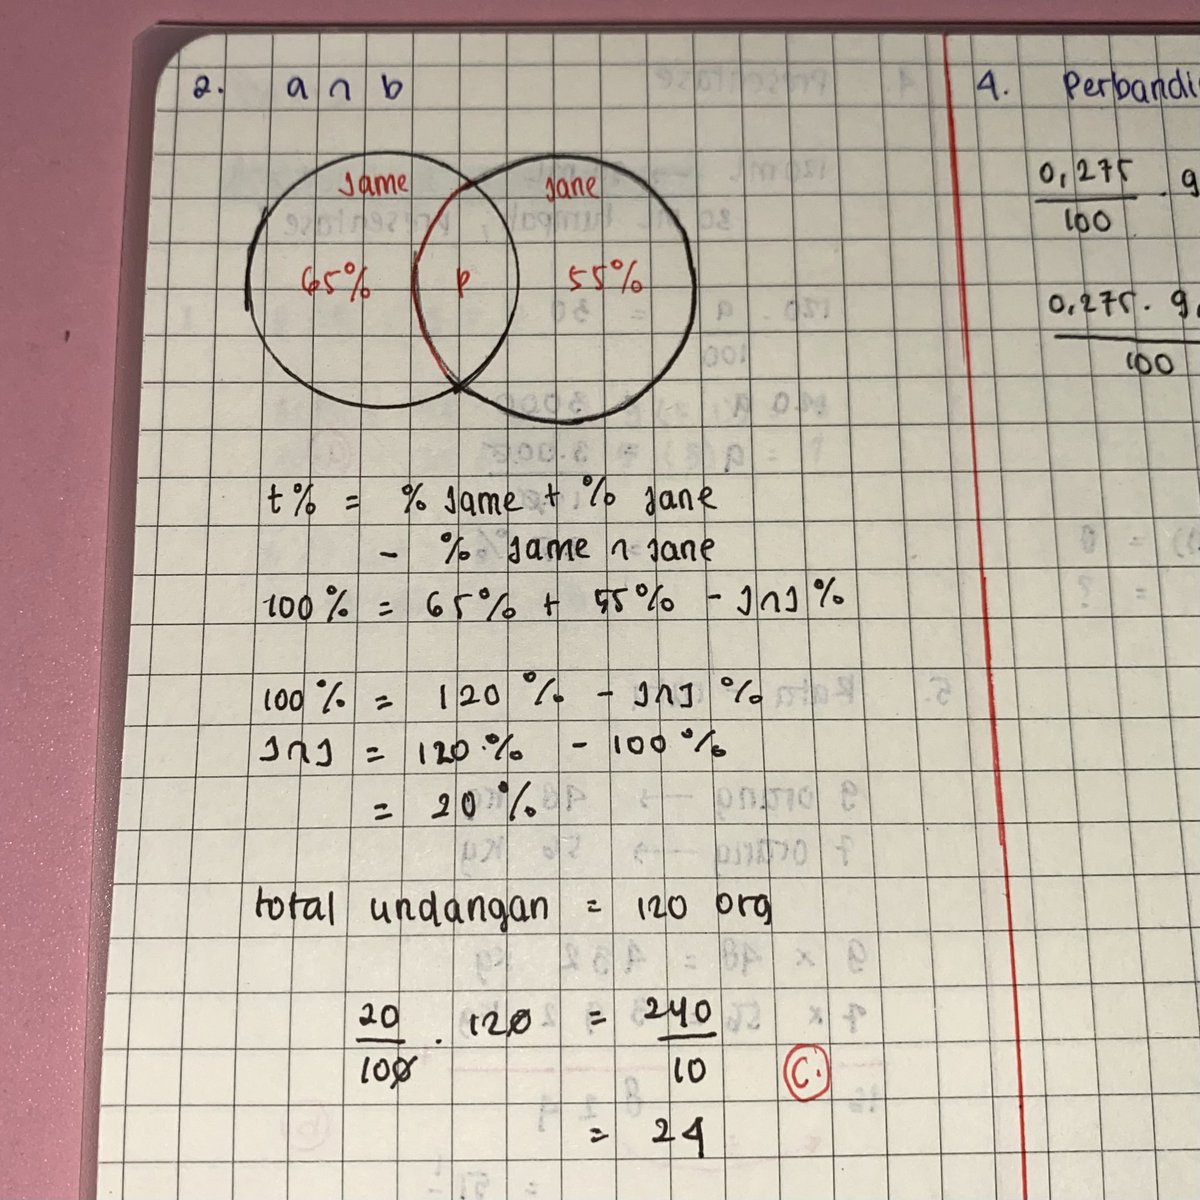 2. a ∩ b
Jame Jane
65% P 55%
t% = % Jame + % Jane
- % Jame ∩ Jane
100% = 65% + 55% - J∩J%
100% = 120% - J∩J%
J∩J = 120% - 100%
= 20%
total undangan = 120 org
20/100 . 120 = 240/10
C.
= 24
4. Perbandi
0,275/100 . 9
0,275 . 9,
100